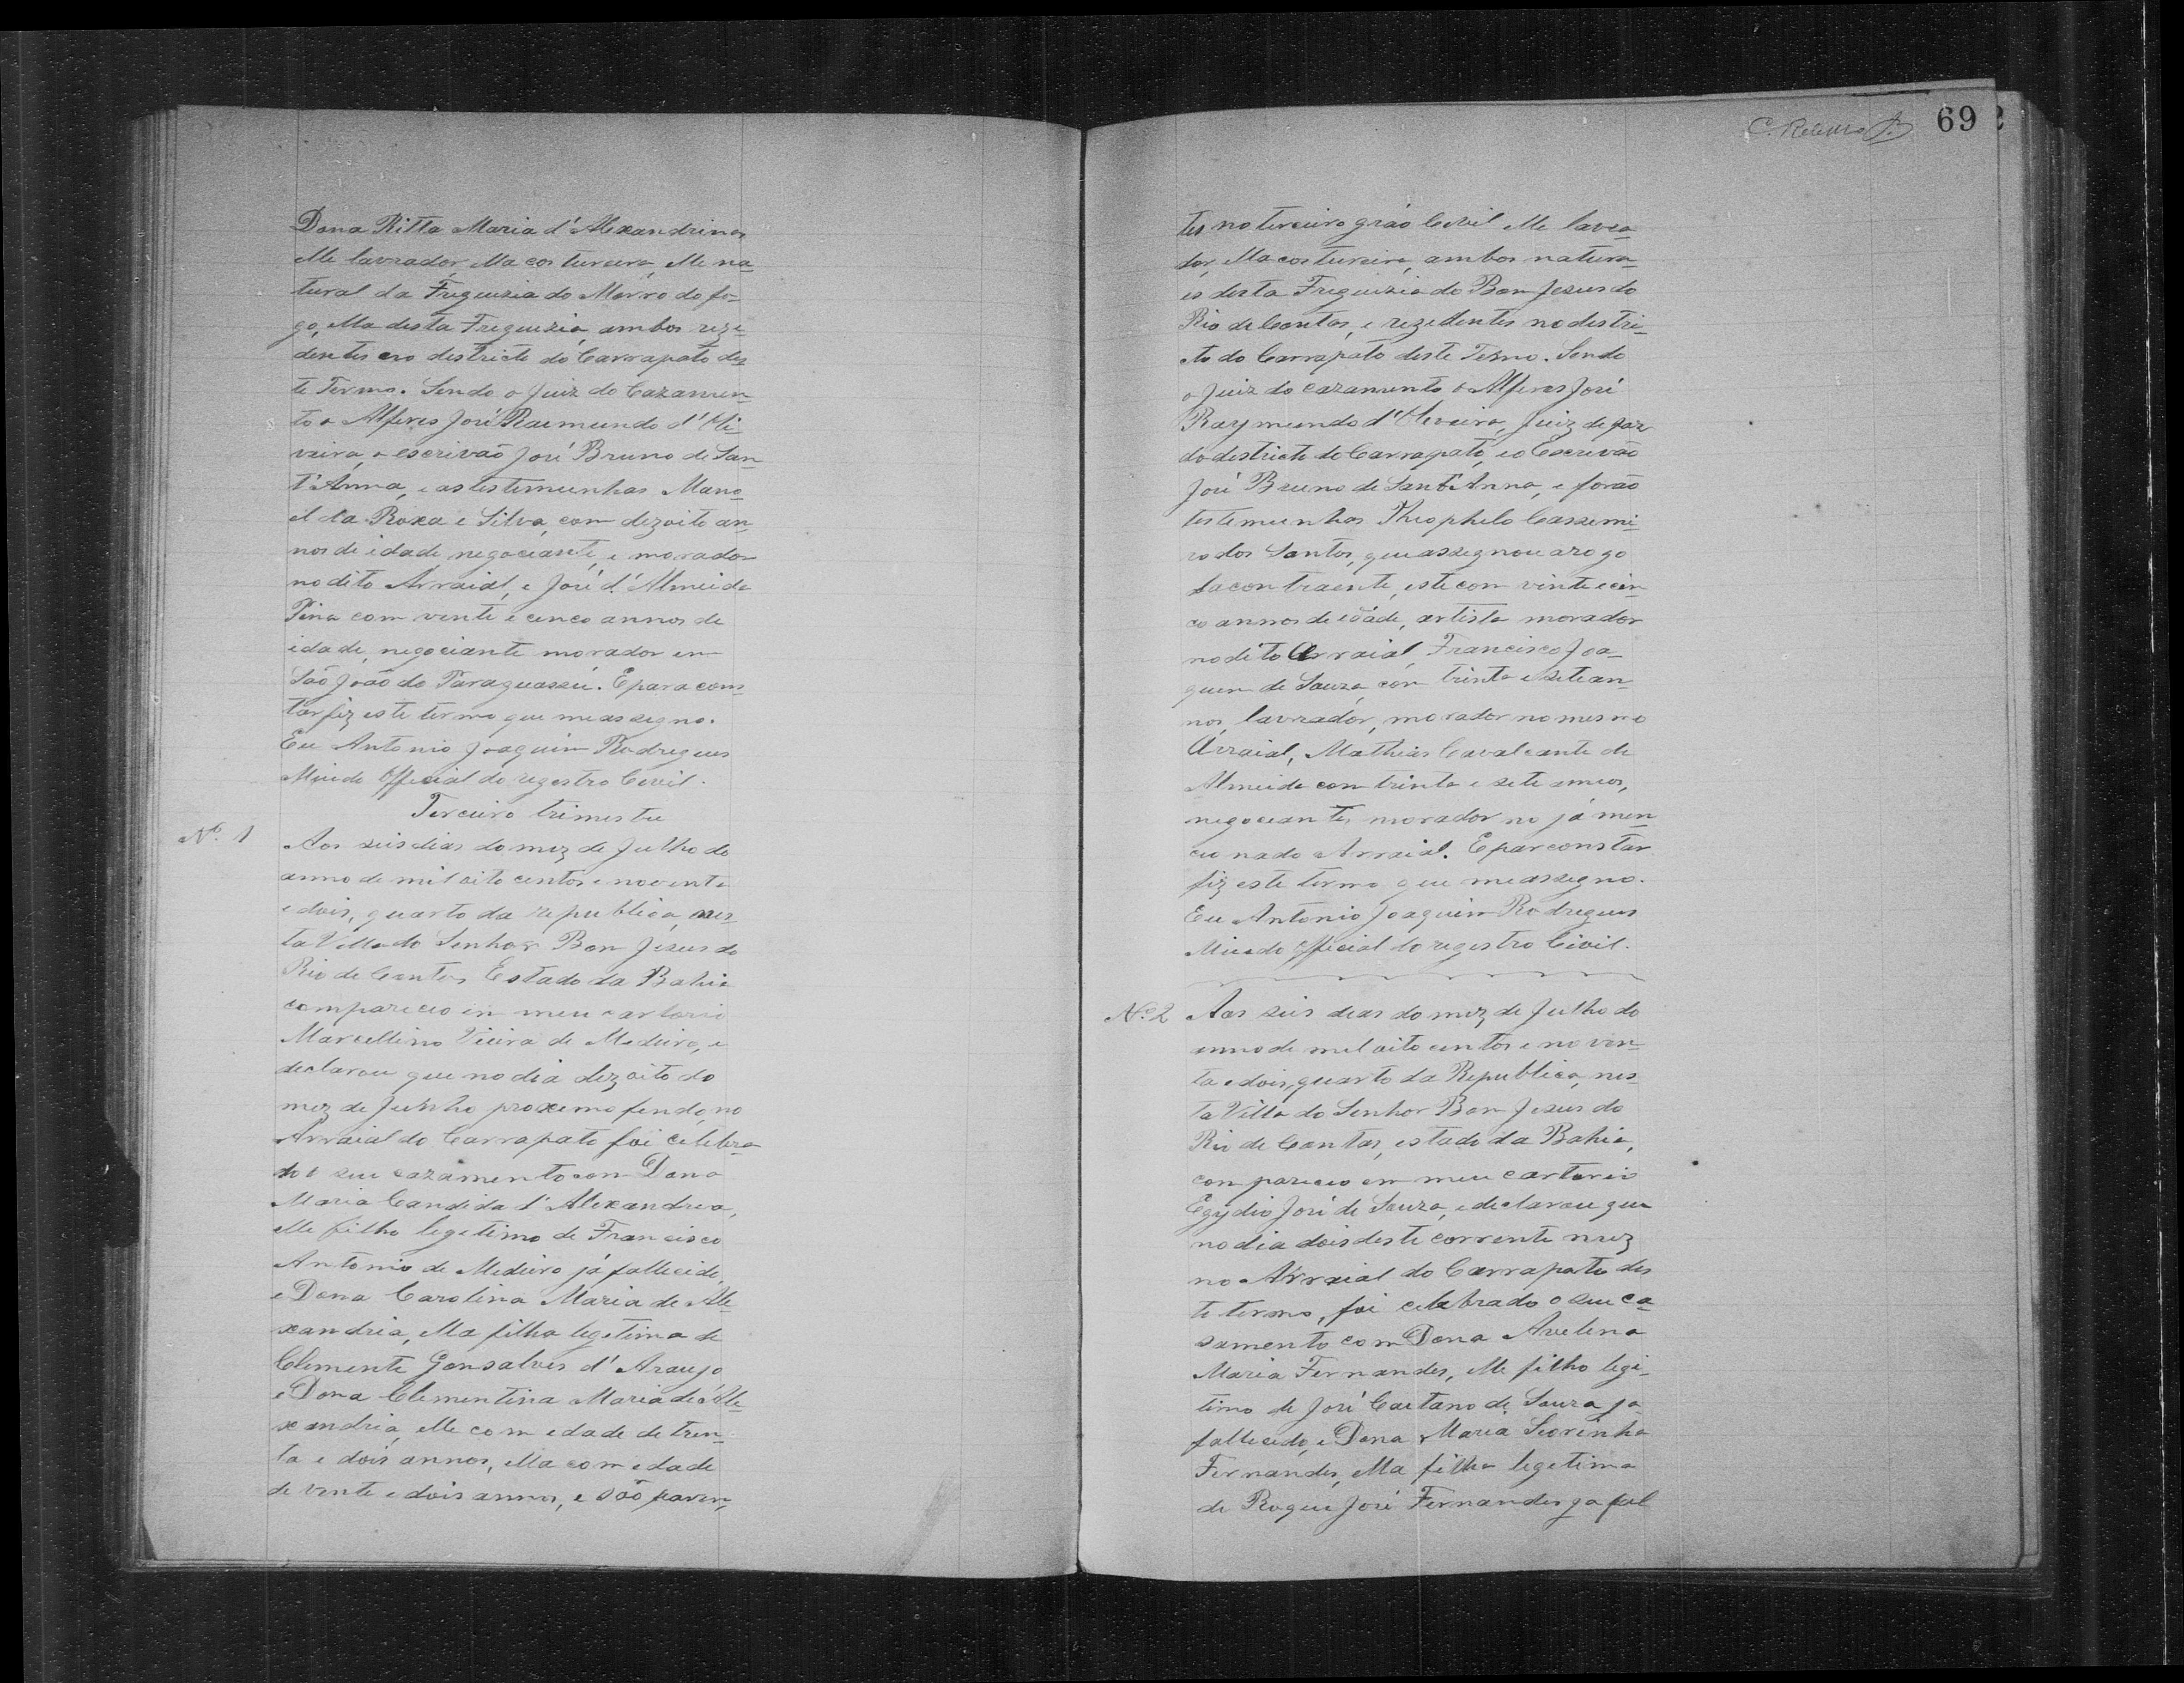 Dona Ritta Maria d'Alexandrina,
elle lavrador, ella costureira, elle na-
tural da Freguizia do Morro do fo-
go, ella desta Freguizia, ambos reze-
dentes no districto do Carrapato des-
te Termo. Sendo o Juiz do Cazamen-
to o Alferes José Raemundo d'Oli-
veira, o escrivaõ José Bruno de San-
t'Anna, e as testemunhas Mano-
el da Roxa e Silva, com dezoito an-
nos de idade, negociante, e morador
no dito Arraial, e José d'Almeida
Pina com vente e cenco annos de
idade, negociante morador em
Saõ Joaõ do Paraguassú. E para cons-
tar fiz este termo que me assegno.
Eu Antonio Joaquim Rodregues
Official do regestro Cevil.
Terceiro trimestre
Nº 1
Aos seis dias do mez de Julho do
anno de mil oito centos e noventa
e dois, quarto da republica, nes-
ta Villa do Senhor Bom Jesus do
Rio de Contas Estado da Bahia
compareceo em meu cartorio
Marcellino Vieira de Medeiro, e
declarou que no dia dezoito do
mez de Junho proxemo fendo, no
Arraial do Carrapato foi celebra-
do o seu cazamento com Dona
Maria Candida d'Alexandrea,
elle filho legetimo de Francisco
Antonio de Medeiro já fallecido,
e Dona Carolina Maria de Ale-
xandria, ella filha legetima de
Clemente Gonsalves d'Araujo
e Dona Clementina Maria de Ale-
xandria, elle com edade de tren-
ta e dois annos, ella com edade
de vente e dois annos, e saõ paren-
C. 69
tes no terceiro gráo Cevil elle lavra-
dor, ella costureira, ambos natura-
es desta Freguizia do Bom Jesus do
Rio de Contas, e rezedentes no destri-
cto do Carrapato deste Termo. Sendo
o Juiz do cazamento o Alferes José
Raymundo d'Oliveira, Juiz de paz
do destricto do Carrapato, e o Escrivaõ
José Bruno de Sant'Anna, e foraõ
testemunhas Theophelo Cassemi-
ro dos Santos, que assegnou a rogo
da contraente, este com vinte e cin-
co annos de edade, artista morador
no dito Arraial, Francisco Joa-
quem de Souza, com trinta e sete an-
nos, lavrador, morador no mesmo
Arraial, Mathias Cavalcante de
Almeida com trinta e sete annos,
negociante, morador no já men-
cionado Arraial. E par constar
fiz este termo que me assegno.
Eu Antonio Joaquim Rodregues
Official do regestro Civil.
Nº 2
Aos seis deas do mez de Julho do
anno de mil oito centos e noven-
ta e dois, quarto da Republica, nes-
ta Villa do Senhor Bom Jesus do
Rio de Contas, estado da Bahia,
compareceo em meu cartorio
Egydio José de Souza, e declarou que
no dia dois deste corrente mez
no Arraial do Carrapato des-
te termo, foi celebrado o seu ca-
samento com Dona Avelina
Maria Fernandes, elle filho legi-
timo de José Caetano de Souza ja
fallecido, e Dona Maria
Fernandes, ella filha legetima
de Roque José Fernandes ja fal